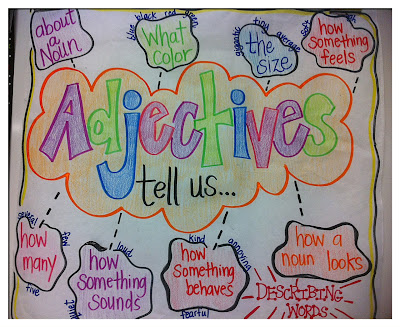 about
a
Noun
blue black red green
What
color
gigantic tiny average
the
size
soft
how
something
feels
Adjectives
tell us...
several
few
five
how
many
loud
how
something
sounds
kind annoying
fearful
how
something
behaves
how a
noun looks
DESCRIBING
WORDS